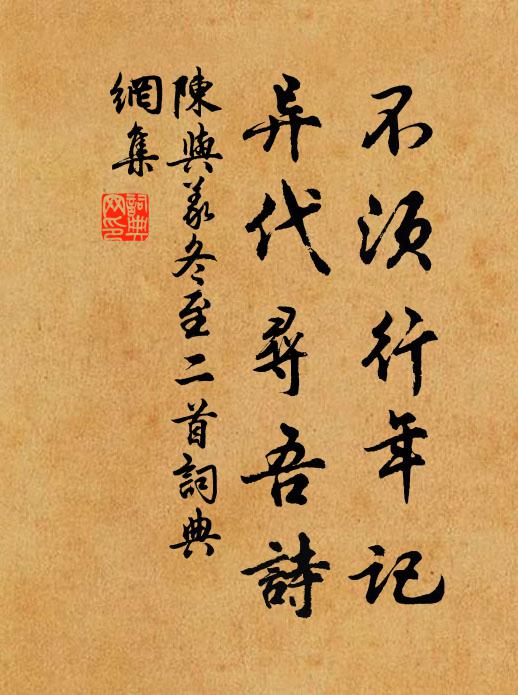 不須行年記
异代尋吾詩
陳與義冬至二首詞典
網集
詞典
网印